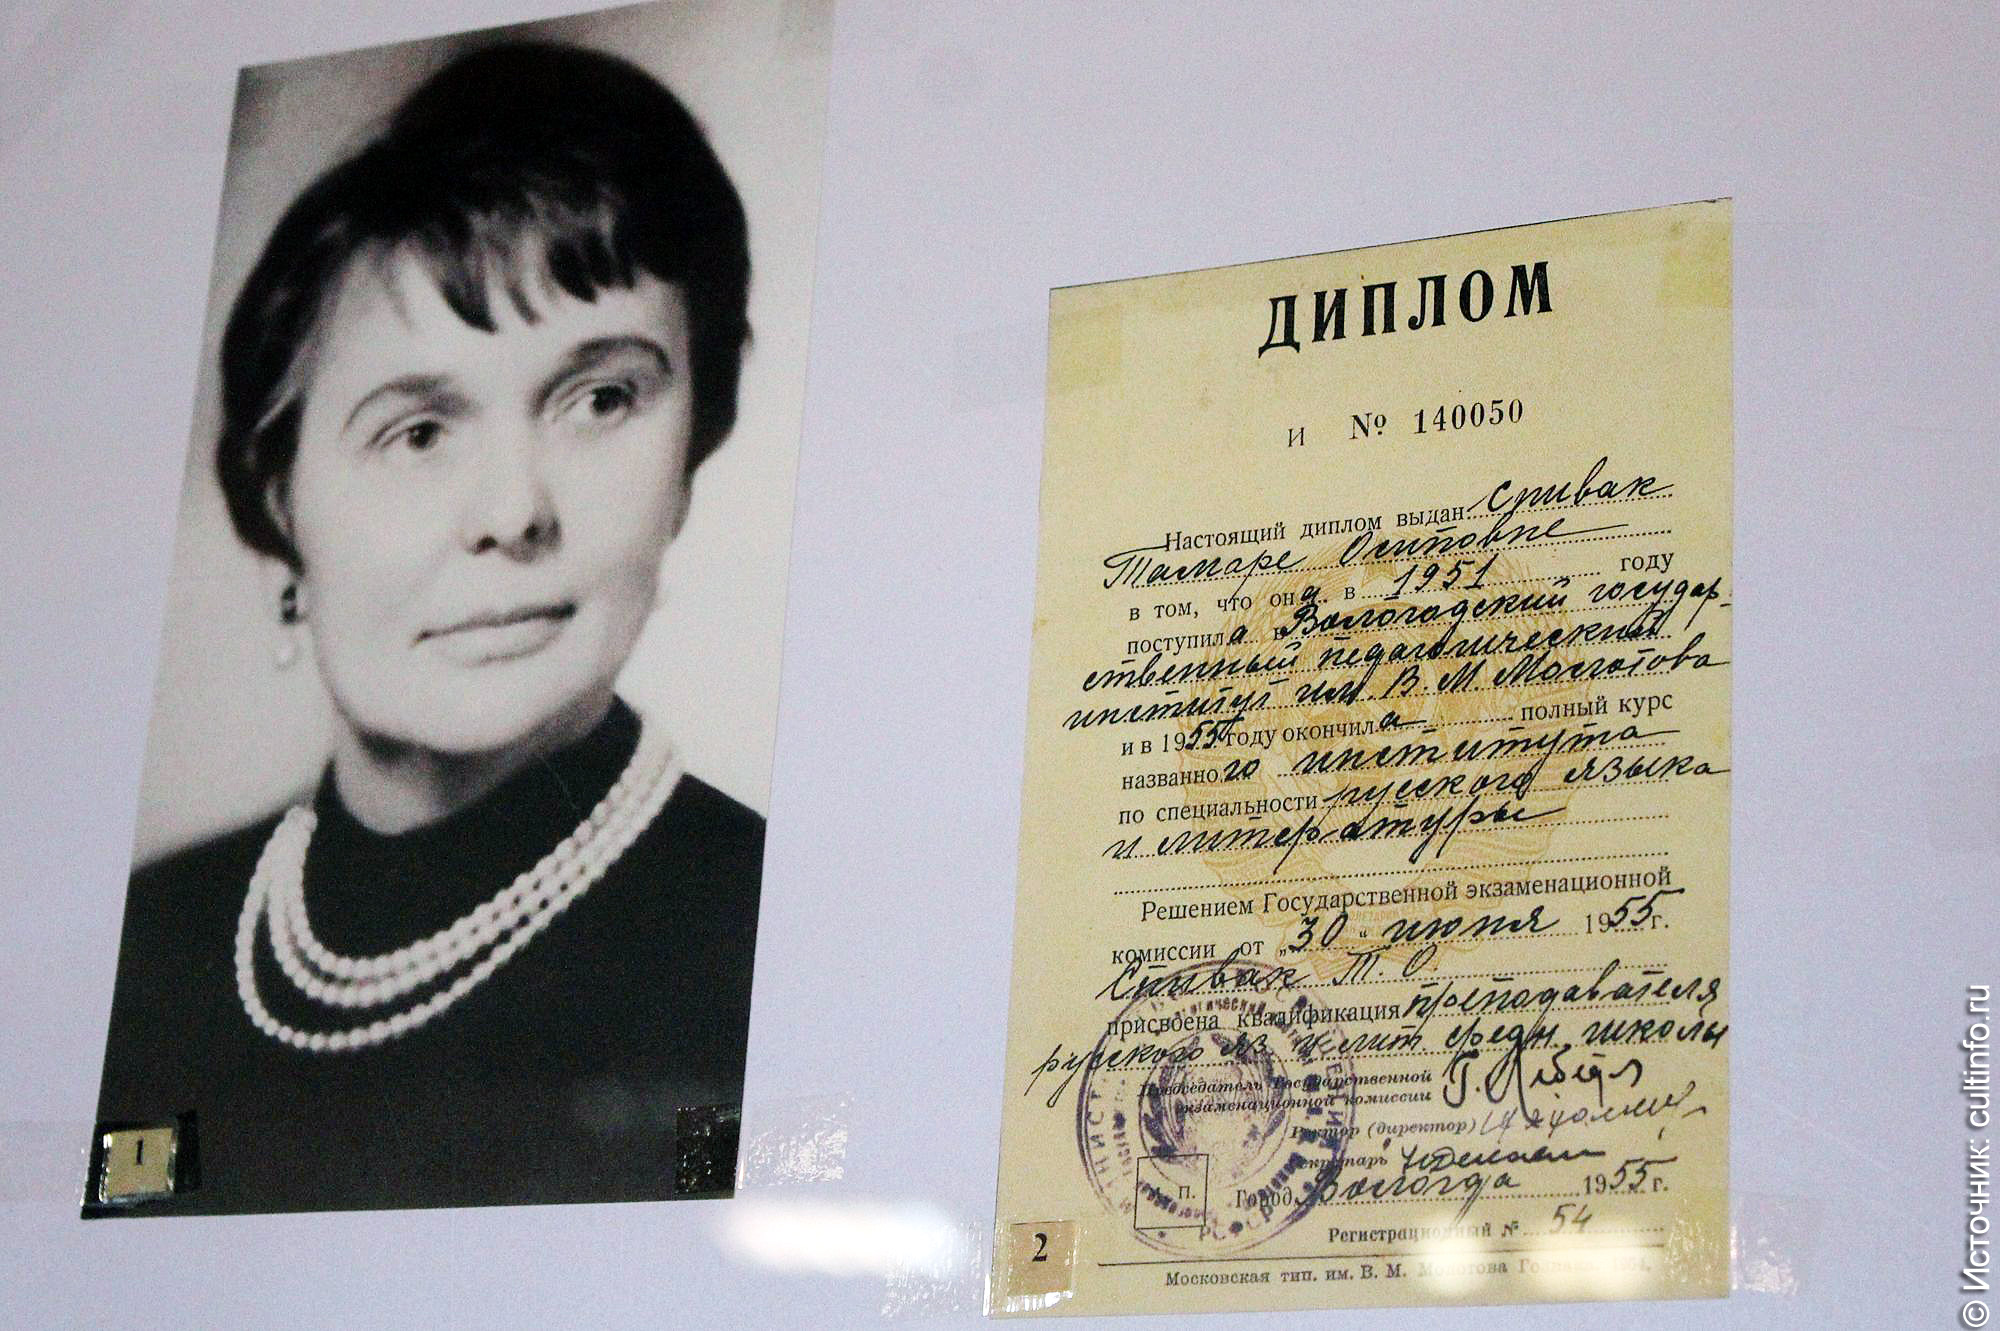 1
ДИПЛОМ
И № 140050
Настоящий диплом выдан Спивак
Тамаре Осиповне
в том, что она в 1951 году
поступила в Вологодский государ-
ственный педагогический
институт им. В. М. Молотова
и в 1955 году окончила полный курс
названного института
по специальности русского языка
и литературы
Решением Государственной экзаменационной
комиссии от „30" июня 1955 г.
Спивак Т. О.
присвоена квалификация преподавателя
русского яз. и лит. средн. школы
Председатель Государственной
экзаменационной комиссии
Ректор (директор)
Секретарь
М. П. Город Вологда 1955 г.
Регистрационный № 54
Московская тип. им. В. М. Молотова Гознака. 1954.
2
© Источник: cultinfo.ru